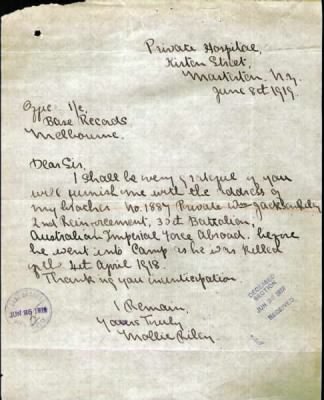 Private Hospital,
Kirton Street,
Masterton, N.Z.
June 8th 1919.
Offic. I/c,
Base Records
Melbourne.
Dear Sir,
I shall be very grateful if you
will furnish me with the address of
my brother No. 1887 Private Wm Jackson Riley
2nd Reinforcement, 33rd Battalion,
Australian Imperial Force Abroad. before
he went into Camp as he was killed
4th April 1918.
Thanking you in anticipation.
I Remain.
Yours Truly
Mollie Riley
JUN 25 1919
SECTION
JUN 1919
RECEIVED